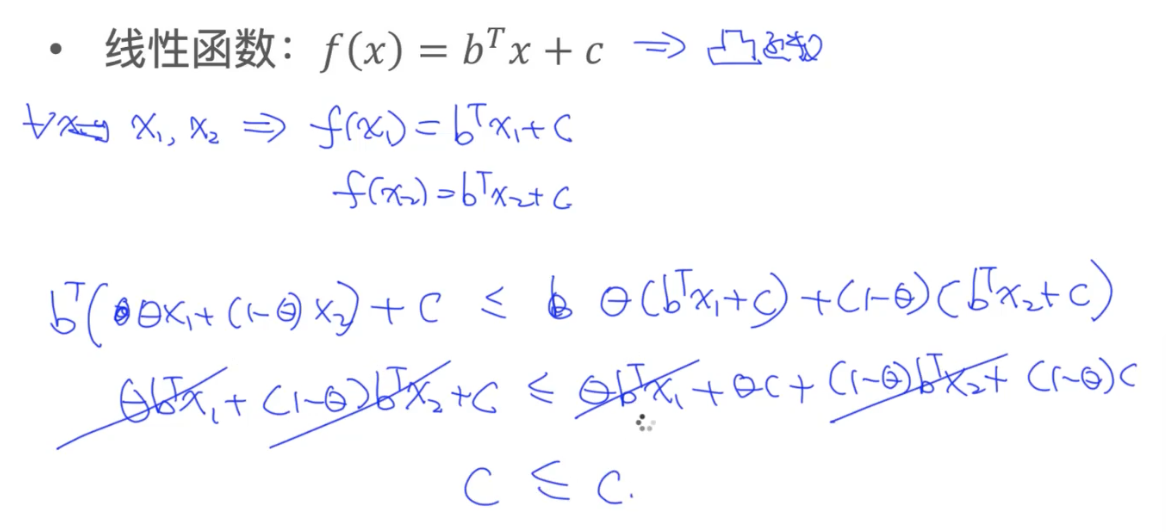 • 线性函数：f(x) = bᵀx + c ⇒ 凸函数
∀ x₁, x₂ ⇒ f(x₁) = bᵀx₁ + c
f(x₂) = bᵀx₂ + c
bᵀ(θx₁ + (1-θ)x₂) + c ≤ θ(bᵀx₁ + c) + (1-θ)(bᵀx₂ + c)
θbᵀx₁ + (1-θ)bᵀx₂ + c ≤ θbᵀx₁ + θc + (1-θ)bᵀx₂ + (1-θ)c
c ≤ c.